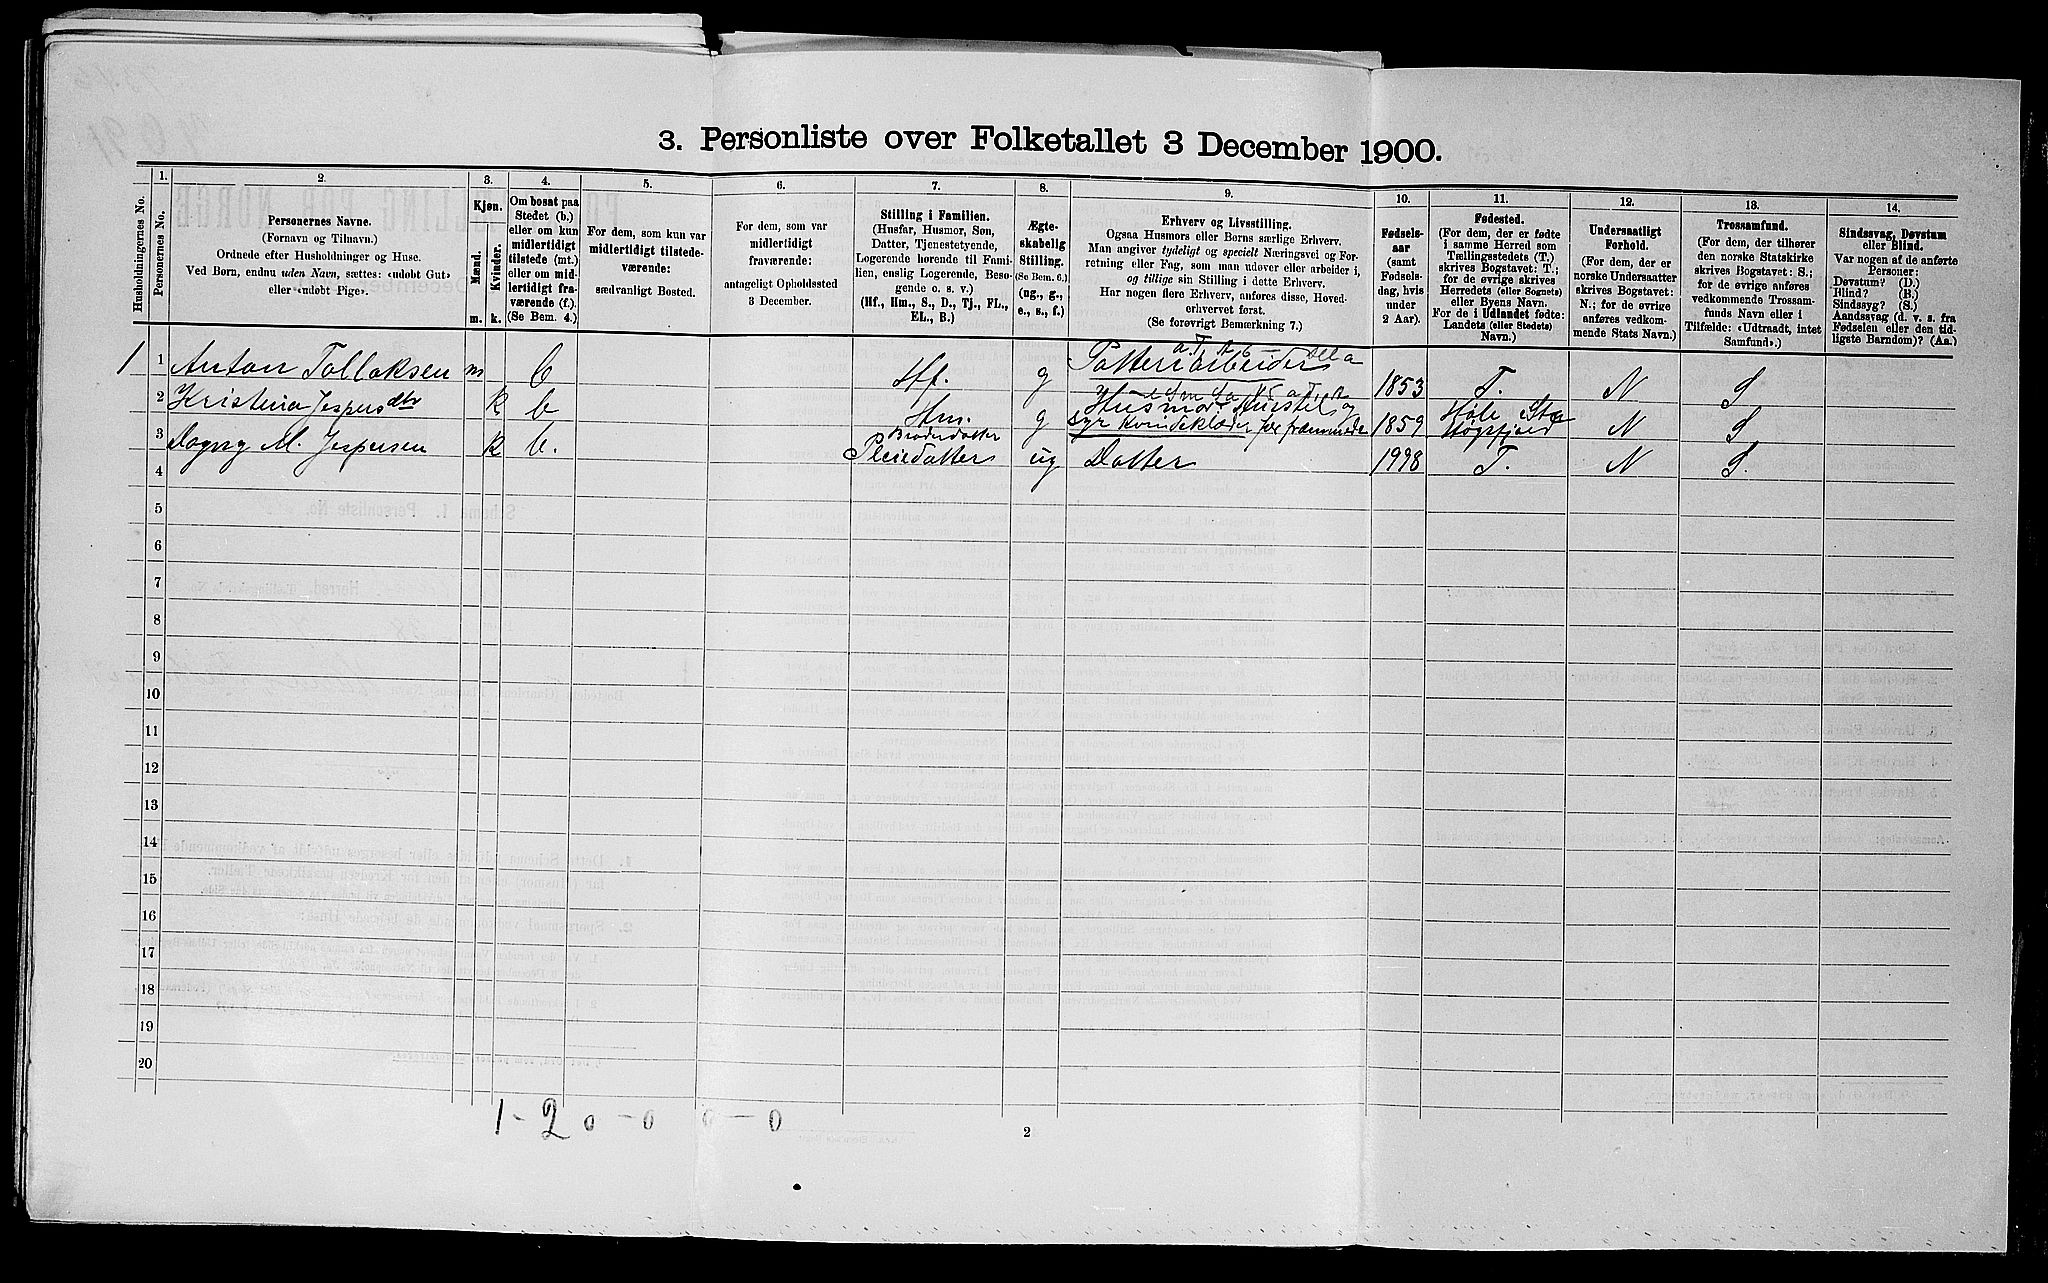 3. Personliste over Folketallet 3 December 1900.
Husholdningernes No.
1.
Personernes No.
2.
Personernes Navne.
(Fornavn og Tilnavn.)
Ordnede efter Husholdninger og Huse.
Ved Børn, endnu uden Navn, sættes: «udøbt Gut»
eller «udøbt Pige».
3.
Kjøn.
Mænd.
Kvinder.
m. k.
4.
Om bosat paa
Stedet (b.)
eller om kun
midlertidigt
tilstede (mt.)
eller om mid-
lertidigt fra-
værende (f.).
(Se Bem. 4.)
5.
For dem, som kun var
midlertidigt tilstede-
værende:
sædvanligt Bosted.
6.
For dem, som var
midlertidigt
fraværende:
antageligt Opholdssted
3 December.
7.
Stilling i Familien.
(Husfar, Husmor, Søn,
Datter, Tjenestetyende,
Logerende hørende til Fami-
lien, enslig Logerende, Besø-
gende o. s. v.)
(Hf., Hm., S., D., Tj., FL.,
EL., B.)
8.
Ægte-
skabelig
Stilling.
(Se Bem. 6.)
(ug., g.,
e., s., f.)
9.
Erhverv og Livsstilling.
Ogsaa Husmors eller Børns særlige Erhverv.
Man angiver tydeligt og specielt Næringsvei og For-
retning eller Fag, som man udøver eller arbeider i,
og tillige sin Stilling i dette Erhverv.
Har nogen flere Erhverv, anføres disse, Hoved-
erhvervet først.
(Se forøvrigt Bemærkning 7.)
10.
Fødsels-
aar
(samt
Fødsels-
dag, hvis
under
2 Aar).
11.
Fødested.
(For dem, der er fødte
i samme Herred som
Tællingsstedets (T.)
skrives Bogstavet: T.;
for de øvrige skrives
Herredets (eller Sognets)
eller Byens Navn.
For de i Udlandet fødte:
Landets (eller Stedets)
Navn.)
12.
Undersaatligt
Forhold.
(For dem, der er
norske Undersaatter
skrives Bogstavet:
N.; for de øvrige
anføres vedkom-
mende Stats Navn.)
13.
Trossamfund.
(For dem, der tilhører
den norske Statskirke
skrives Bogstavet: S.;
for de øvrige anføres
vedkommende Trossam-
funds Navn eller i
Tilfælde: «Udtraadt, intet
Samfund».)
14.
Sindssvag, Døvstum
eller Blind.
Var nogen af de anførte
Personer:
Døvstum? (D.)
Blind? (B.)
Sindssyg? (S.)
Aandssvag (d. v. s. fra
Fødselen eller den tid-
ligste Barndom)? (Aa.)
1 1 Anton Tollaksen m b Hf. g Potteriarbeider 1853 T. N S
2 Kristina Jespersdtr k b Hm. g Husmor
syr Kvindeklæder for fræmmede 1859 Høle
Høgsfjord N S
3 Dagny M. Jespersen k b. Broderdatter
Pleiedatter ug Datter 1998 T. N S.
4
5
6
7
8
9
10
11
12
13
14
15
16
17
18
19
20
1 - 2 0 - 0 0 - 0
2